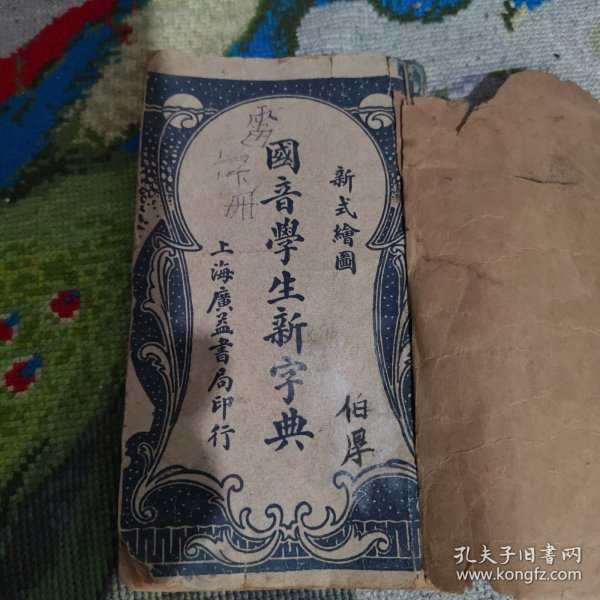 新式繪圖
國音學生新字典
上海廣益書局印行
伯厚
孔夫子旧書网
www.kongfz.com